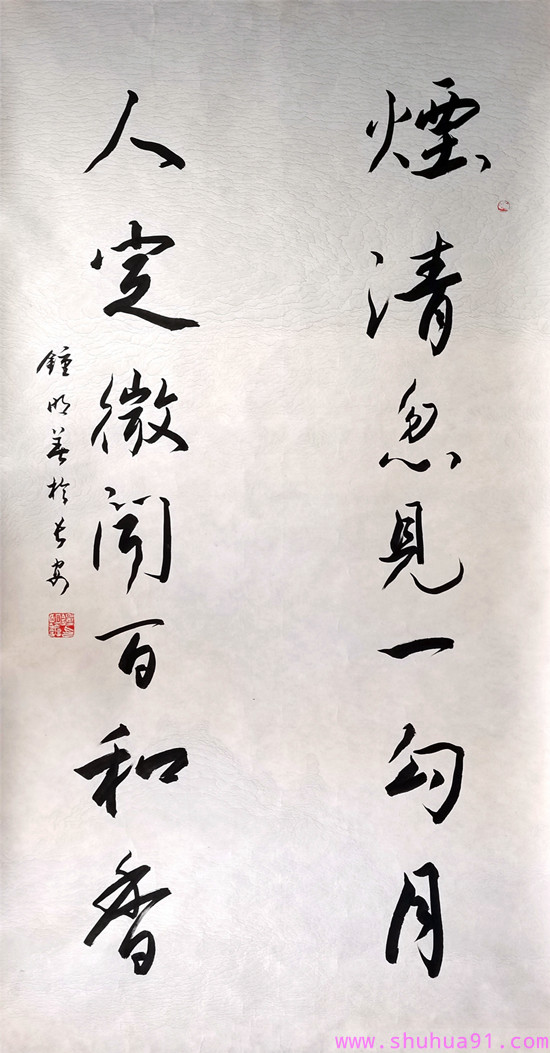 煙清忽見一勾月
人定微聞百和香
鍾明善於長安
www.shuhua91.com